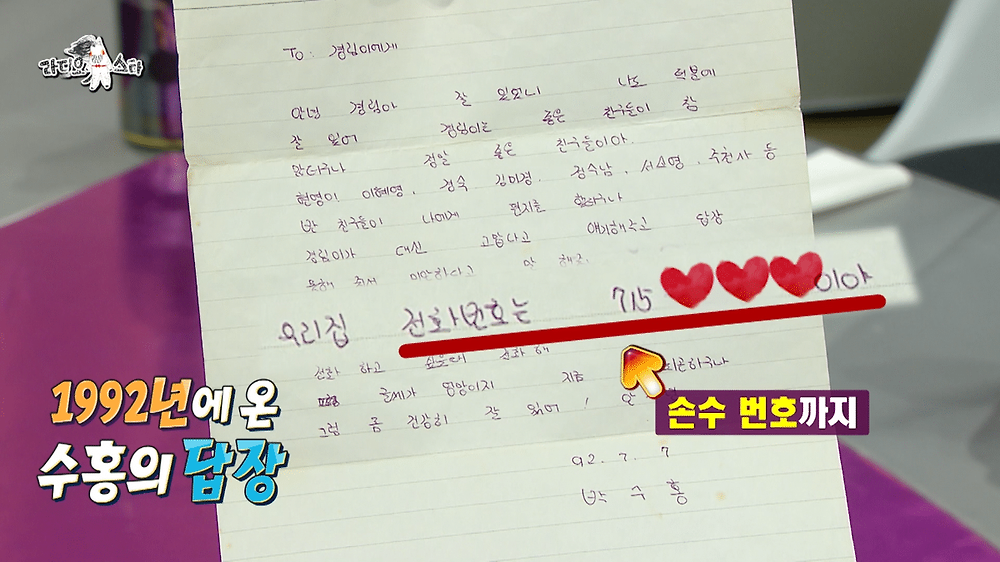 라디오스타
To: 경림이에게
안녕 경림아 잘 있었니 나도 덕분에
잘 있어 경림이는 좋은 친구들이 참
많더구나 정말 좋은 친구들이야.
현영이, 이혜영, 경숙, 김미경, 김수남, 서소영, 주천사 등
반 친구들이 나에게 편지를 했더구나
경림이가 대신 고맙다고 얘기해주고 답장
못해 줘서 미안하다고
우리집 전화번호는 715 이야
전화 하고 싶을때 전화 해
글씨가 엉망이지 지금 피곤하구나
그럼 몸 건강히 잘 있어!
92. 7. 7
박 수 홍
1992년에 온
수홍의 답장
손수 번호까지